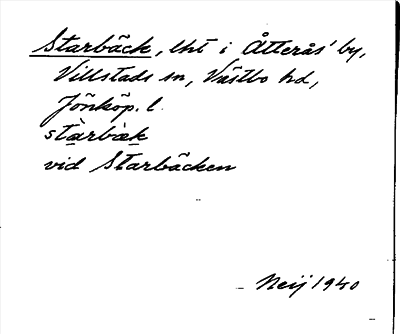 Starbäck, lht i Åtterås' by,
Villstads sn, Västbo hd,
Jönköp. l.
stàrbàk
vid Starbäcken
Neij 1940